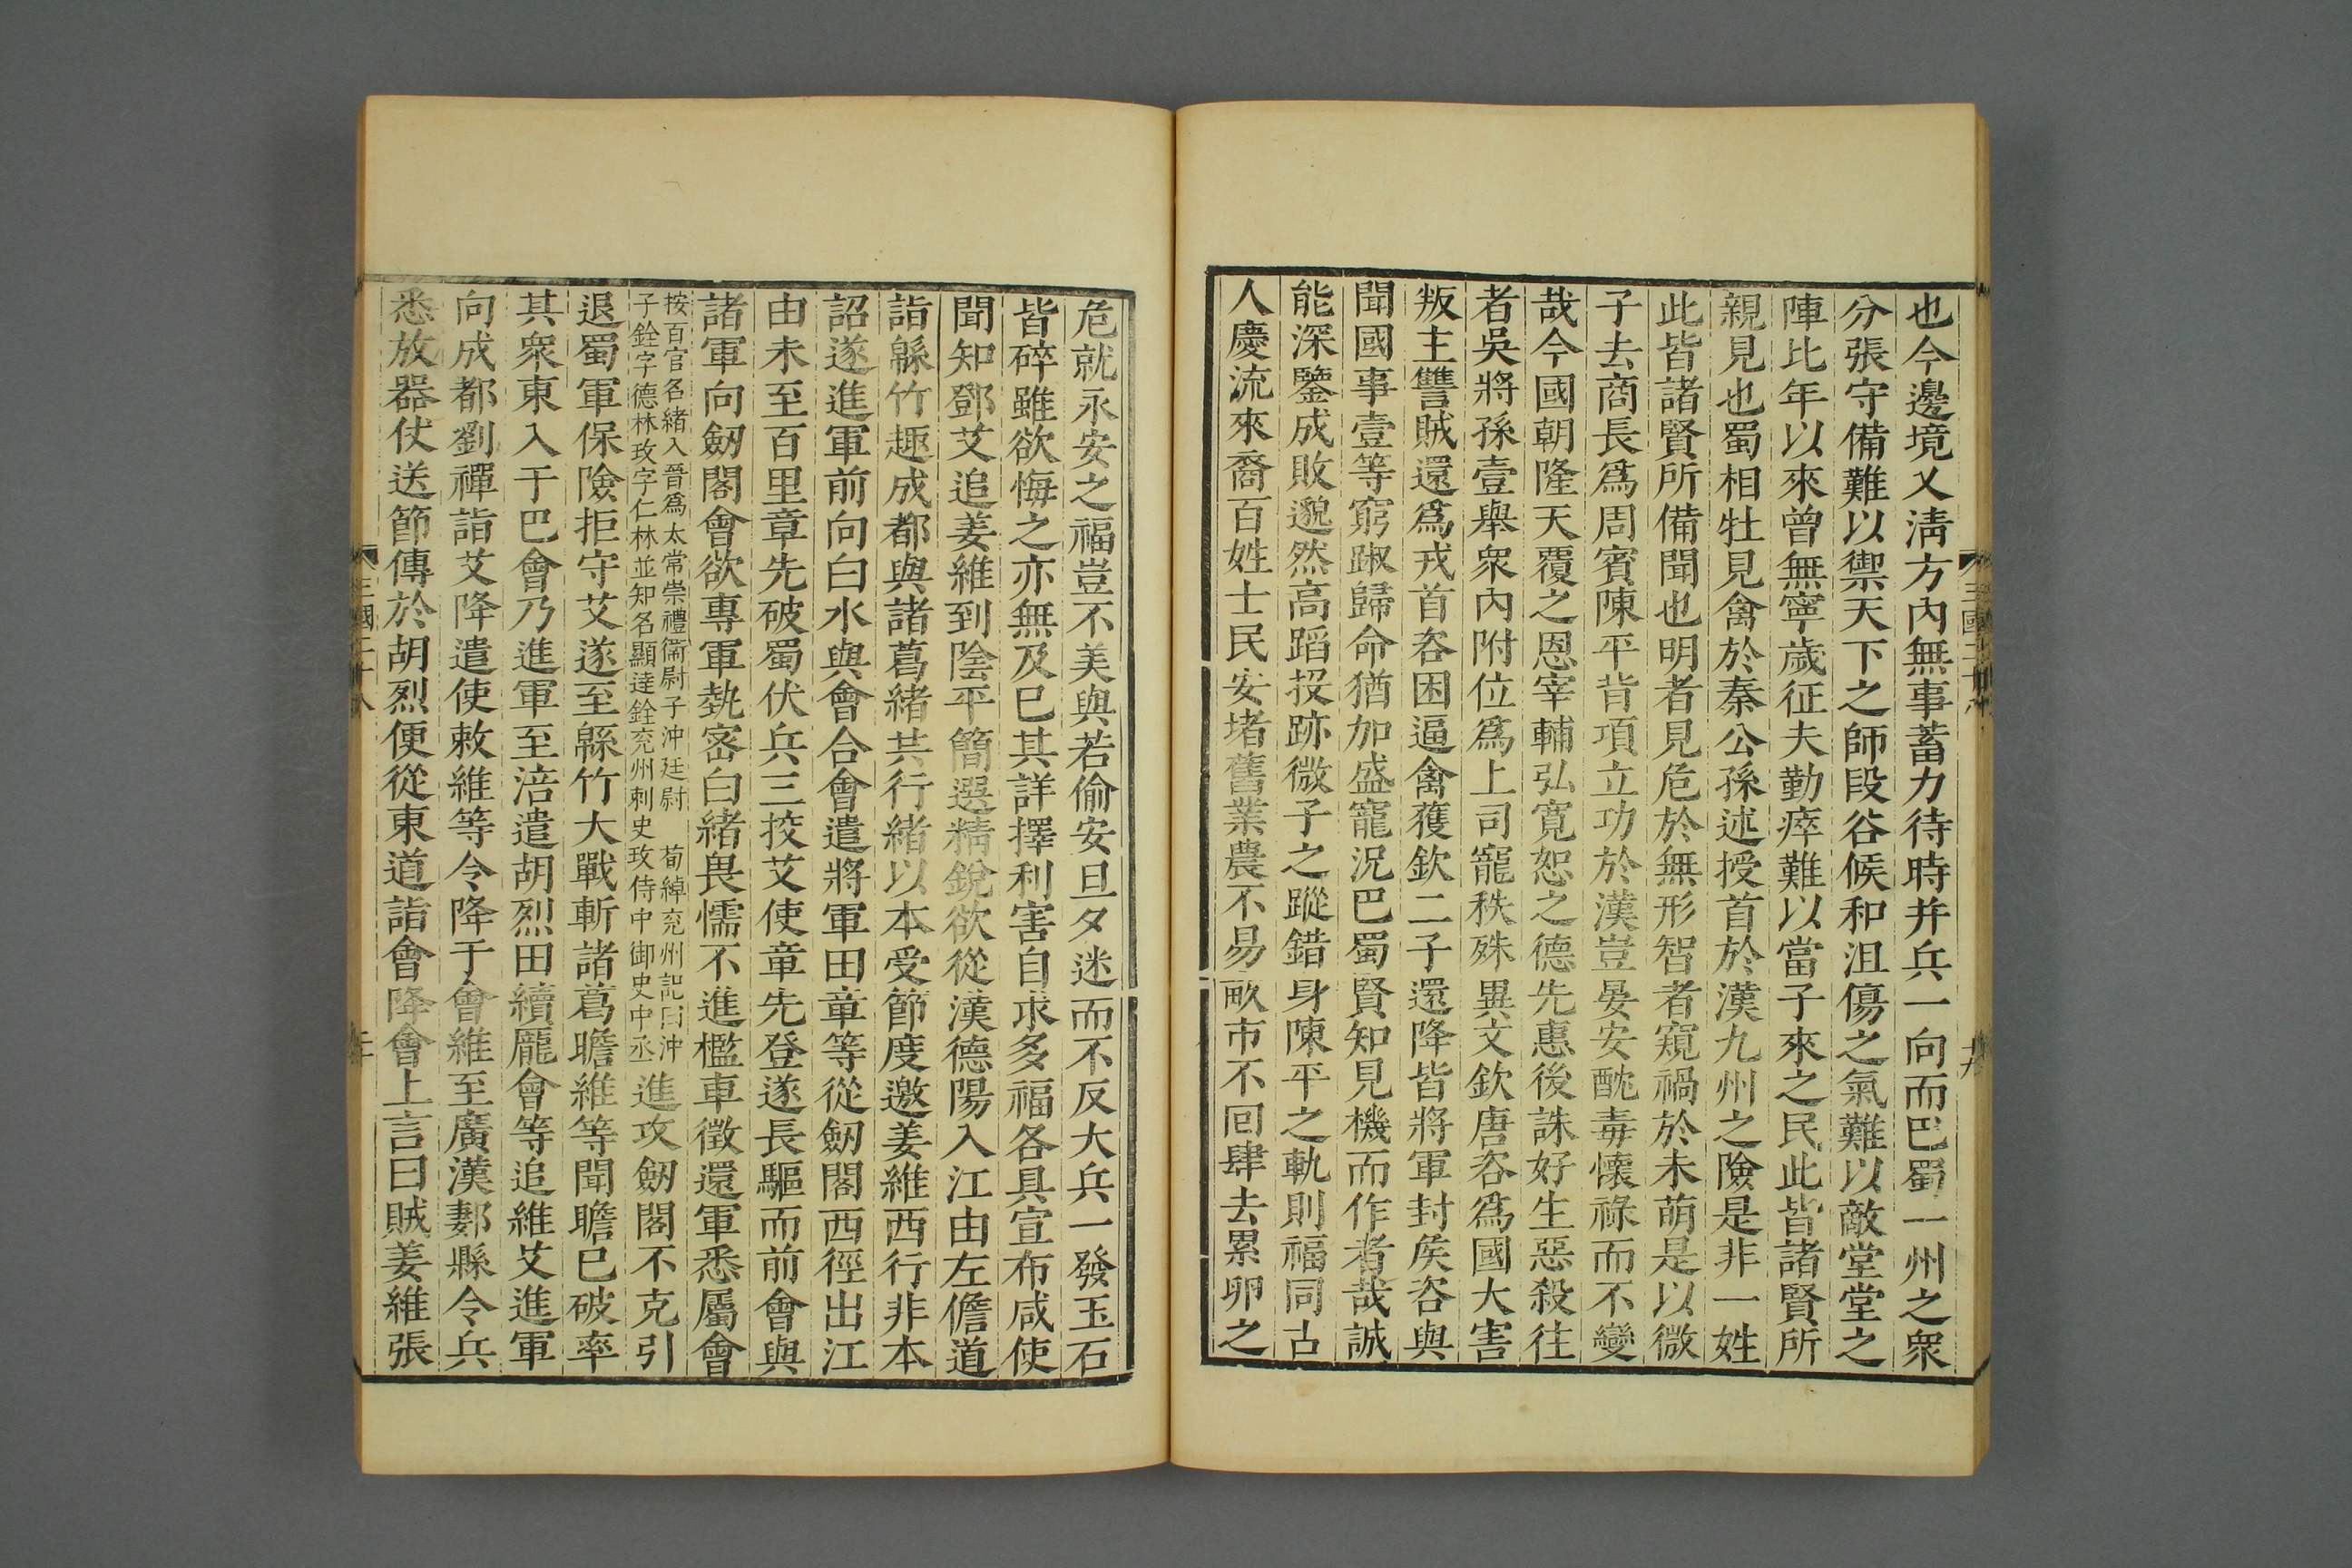 也今邊境乂淸方內無事蓄力待時幷兵一向而巴蜀一州之衆
分張守備難以禦天下之師段谷候和沮傷之氣難以敵堂堂之
陣比年以來曾無寧歲征夫勤瘁難以當子來之民此皆諸賢所
親見也蜀相牡見禽於秦公孫述授首於漢九州之險是非一姓
此皆諸賢所備聞也明者見危於無形智者窺禍於未萌是以微
子去商長爲周賓陳平背項立功於漢豈晏安酖毒懷祿而不變
哉今國朝隆天覆之恩宰輔弘寬恕之德先惠後誅好生惡殺往
者吳將孫壹舉衆內附位爲上司寵秩殊異文欽唐咨爲國大害
叛主讐賊還爲戎首咨困逼禽獲欽二子還降皆將軍封侯咨與
聞國事壹等窮踧歸命猶加盛寵況巴蜀賢知見機而作者哉誠
能深鑒成敗邈然高蹈投跡微子之蹤錯身陳平之軌則福同古
人慶流來裔百姓士民安堵舊業農不易畝市不回肆去累卵之
三國二十八
十九
危就永安之福豈不美與若偷安旦夕迷而不反大兵一發玉石
皆碎雖欲悔之亦無及已其詳擇利害自求多福各具宣布咸使
聞知鄧艾追姜維到陰平簡選精銳欲從漢德陽入江由左儋道
詣緜竹趣成都與諸葛緒共行緒以本受節度邀姜維西行非本
詔遂進軍前向白水與會合會遣將軍田章等從劒閣西徑出江
由未至百里章先破蜀伏兵三挍艾使章先登遂長驅而前會與
諸軍向劒閣會欲專軍埶密白緒畏懦不進檻車徵還軍悉屬會
按百官名緒入晉爲太常崇禮衞尉子沖廷尉 荀綽兖州記曰沖
子銓字德林玫字仁林並知名顯達銓兖州刺史玫侍中御史中丞
進攻劒閣不克引
退蜀軍保險拒守艾遂至緜竹大戰斬諸葛瞻維等聞瞻已破率
其衆東入于巴會乃進軍至涪遣胡烈田續龐會等追維艾進軍
向成都劉禪詣艾降遣使敕維等令降于會維至廣漢郪縣令兵
悉放器仗送節傳於胡烈便從東道詣會降會上言曰賊姜維張
三國二十八
二十